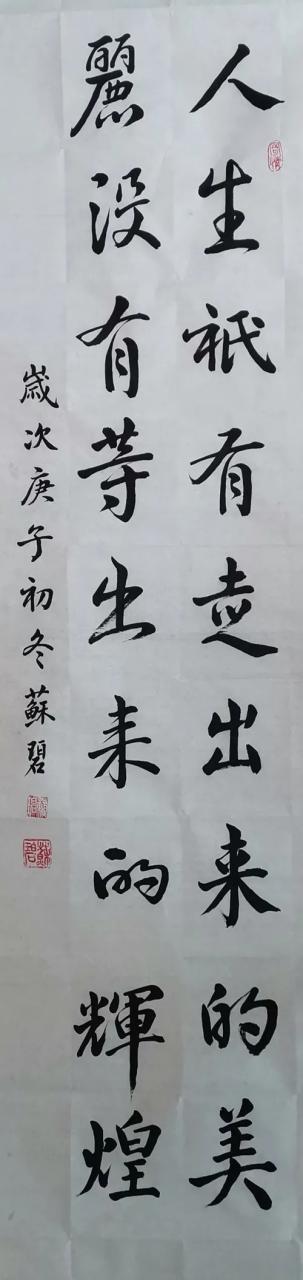 人生祇有走出来的美
麗没有等出来的輝煌
歲次庚子初冬蘇碧